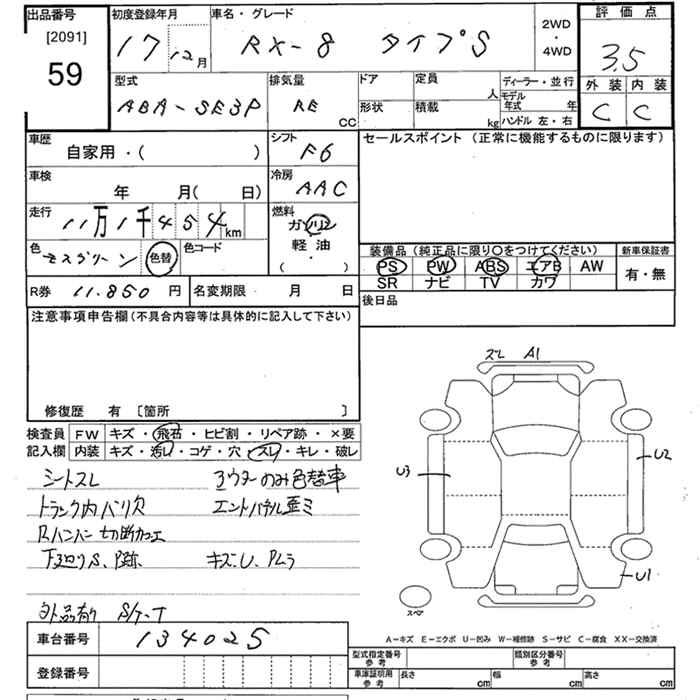 出品番号 初度登録年月 車名・グレード 2WD・4WD 評価点
[2091] 17 12月 RX-8 タイプS 3.5
59
型式 排気量 ドア 定員 人 ディーラー・並行 外装 内装
ABA-SE3P RE CC 形状 積載 kg モデル年式 年 C C
ハンドル 左・右
車歴 シフト セールスポイント(正常に機能するものに限ります)
自家用・( ) F6
車検 冷房
年 月( 日) AAC
走行 燃料
11万1千454km ガソリン
色 色替 色コード 軽油
モスグリーン ( ・ )
装備品(純正品に限り○をつけてください) 新車保証書
PS PW ABS エアB AW 有・無
SR ナビ TV カワ
R券 11.850 円 名変期限 月 日 後日品
注意事項申告欄(不具合内容等は具体的に記入して下さい)
修復歴 有 [箇所 ]
検査員 FW キズ・飛石・ヒビ割・リペア跡・×要
記入欄 内装 キズ・汚れ・コゲ・穴・スレ・キレ・破レ
シートスレ アウターのみ色替車
トランク内バリ欠 エンドパネル歪ミ
Rバンパー切断加工
下回りS、P跡 キズ、U、Pムラ
外品有り S/ケ-T
スレ A1
U3
U2
U1
スペア
A-キズ E-エクボ U-凹み W-補修跡 S-サビ C-腐食 XX-交換済
車台番号 134025
登録番号
型式指定番号 参考 類別区分番号 参考
車庫証明用 参考 長さ cm 幅 cm 高さ cm